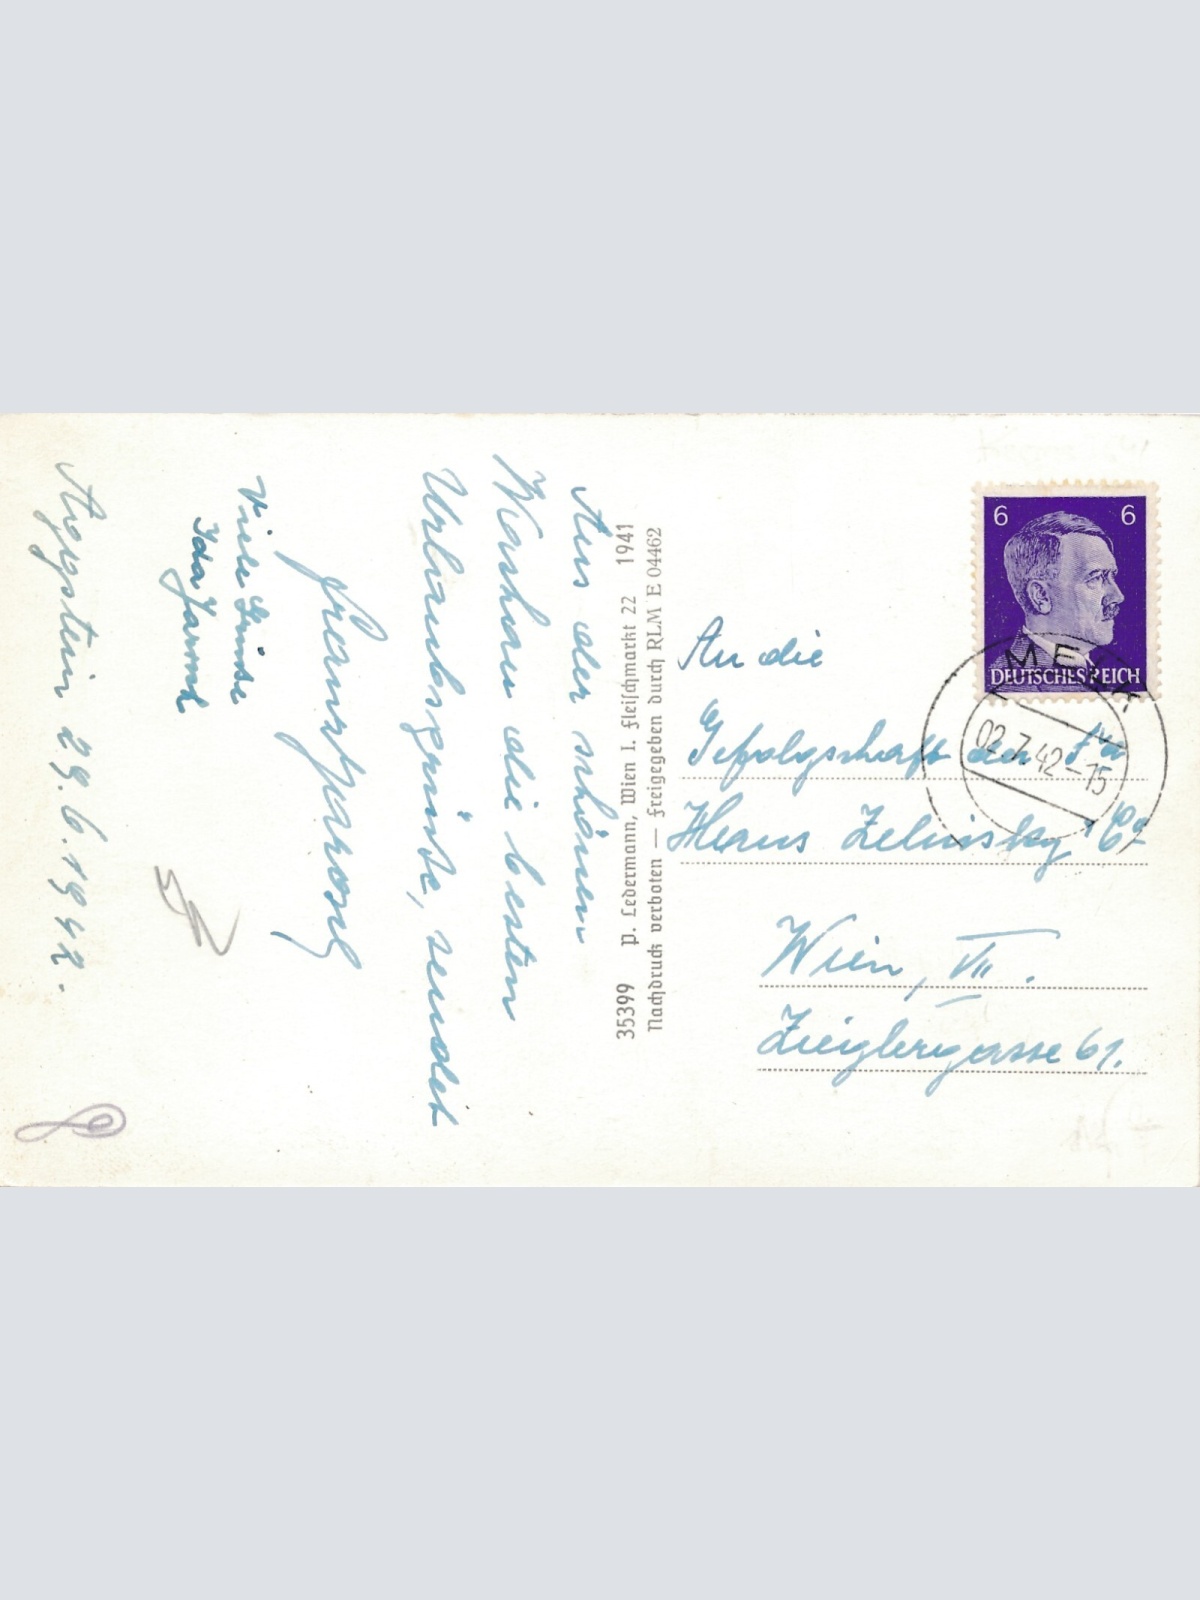 Aus der schönen
Wachau die besten
Urlaubsgrüße, sendet
Viele Grüße
Ida
Aggstein 29.6.1942.
35399 P. Ledermann, Wien I. Fleischmarkt 22 1941
Nachdruck verboten — Freigegeben durch RLM E 04462
6 6
DEUTSCHES REICH
MELK
02.7.42-15
An die
Gefolgschaft der Fa
Hans Zelinsky & Co
Wien, VII.
Zieglergasse 61.